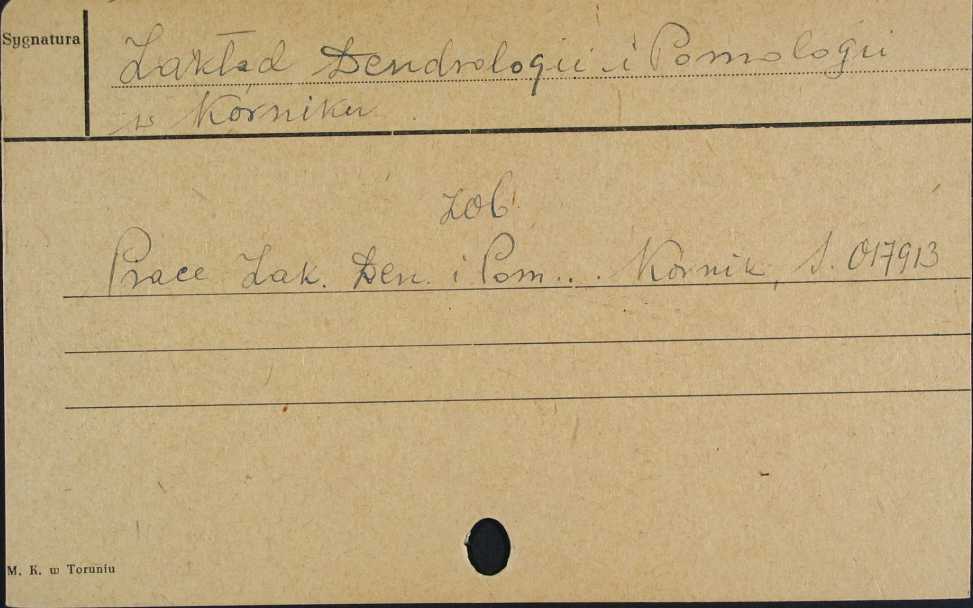 Sygnatura
Zakład Dendrologii i Pomologii
w Kórniku
zob.
Prace Zak. Den. i Pom... Kórnik, S. 017913
M. K. w Toruniu